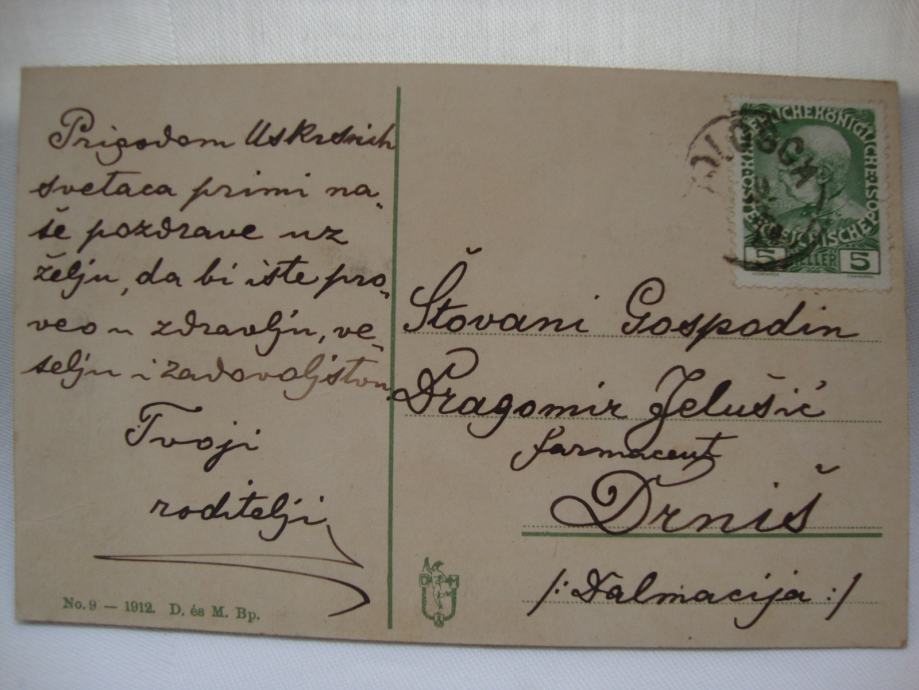 Prigodom Uskrsnih
svetaca primi na-
še pozdrave uz
želju, da bi iste pro-
veo u zdravlju, ve-
selju i zadovoljstvu
Tvoji
roditelji
No. 9 — 1912. D. és M. Bp.
5 HELLER 5
Štovani Gospodin
Dragomir Jelušić
farmaceut
Drniš
/: Dalmacija :/
D M